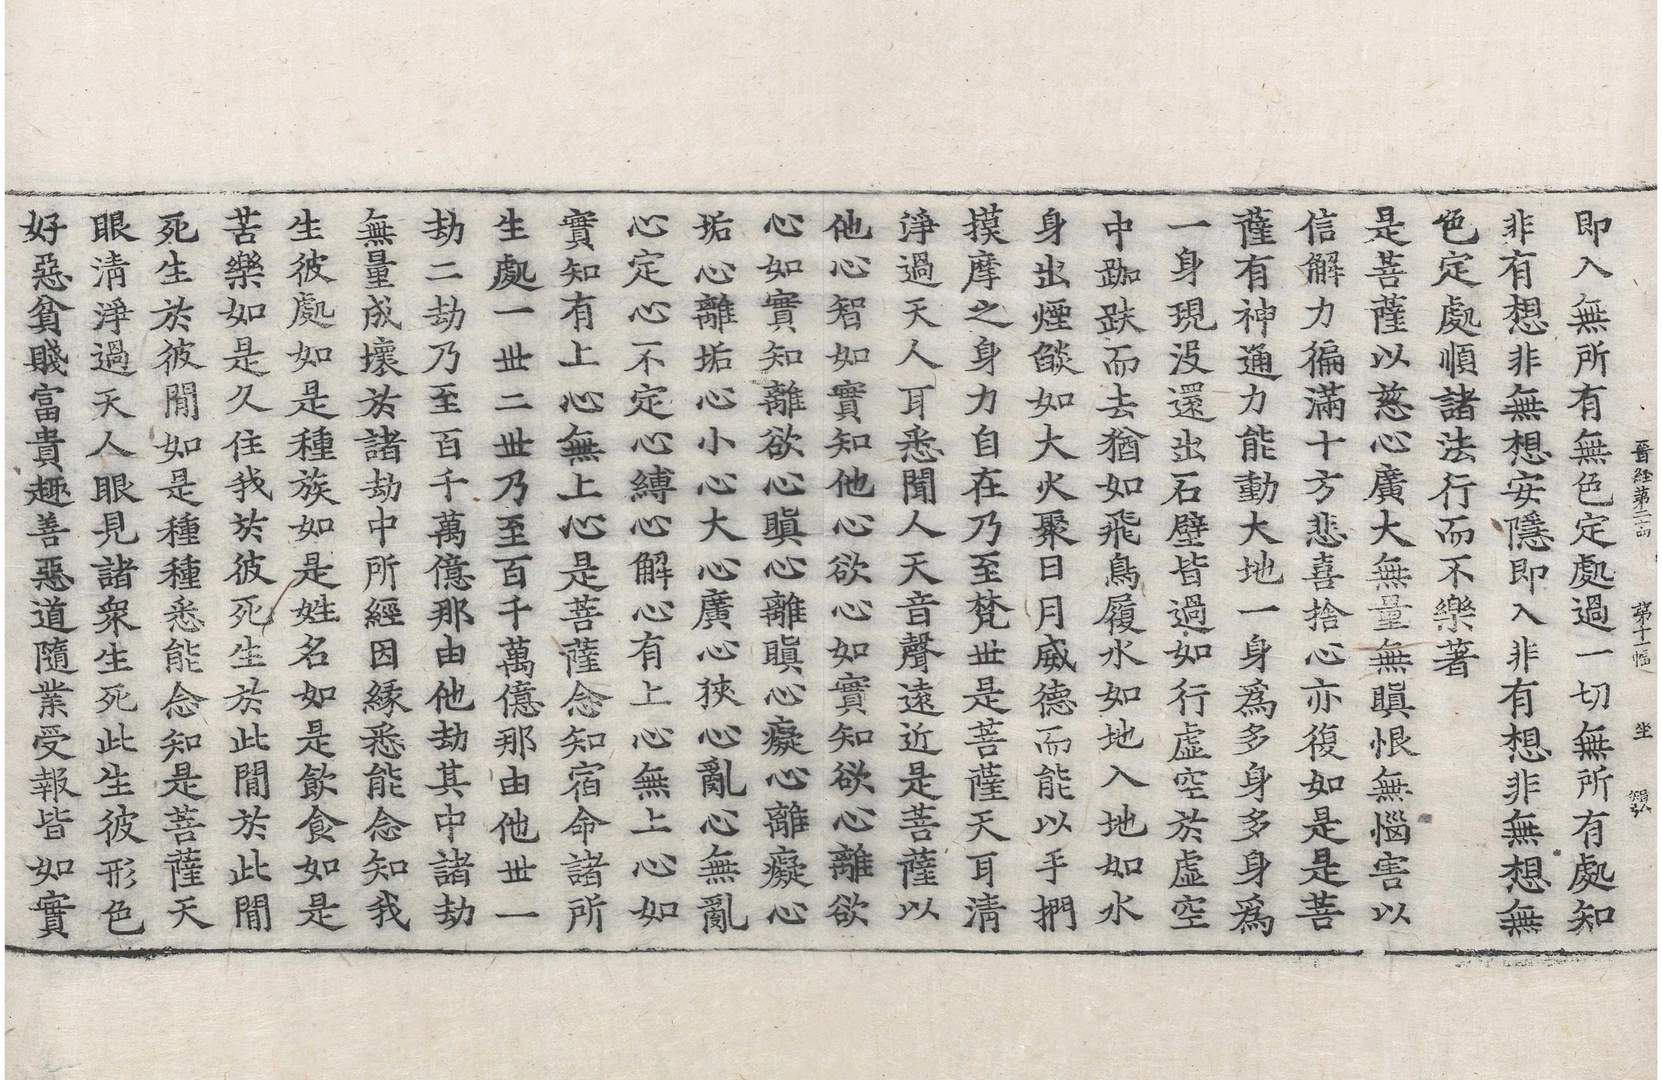 晉経第二十四 第十一幅 坐
即入無所有無色定處過一切無所有處知
非有想非無想安隱即入非有想非無想無
色定處順諸法行而不樂著
是菩薩以慈心廣大無量無瞋恨無惱害以
信解力徧滿十方悲喜捨心亦復如是是菩
薩有神通力能動大地一身爲多身多身爲
一身現没還出石壁皆過如行虛空於虛空
中跏趺而去猶如飛鳥履水如地入地如水
身出煙燄如大火聚日月威德而能以手捫
摸摩之身力自在乃至梵世是菩薩天耳清
淨過天人耳悉聞人天音聲遠近是菩薩以
他心智如實知他心欲心如實知欲心離欲
心如實知離欲心瞋心離瞋心癡心離癡心
垢心離垢心小心大心廣心狹心亂心無亂
心定心不定心縛心解心有上心無上心如
實知有上心無上心是菩薩念知宿命諸所
生處一丗二丗乃至百千萬億那由他丗一
劫二劫乃至百千萬億那由他劫其中諸劫
無量成壞於諸劫中所經因緣悉能念知我
生彼處如是種族如是姓名如是飲食如是
苦樂如是久住我於彼死生於此間於此間
死生於彼間如是種種悉能念知是菩薩天
眼清淨過天人眼見諸衆生死此生彼形色
好惡貧賤富貴趣善惡道隨業受報皆如實